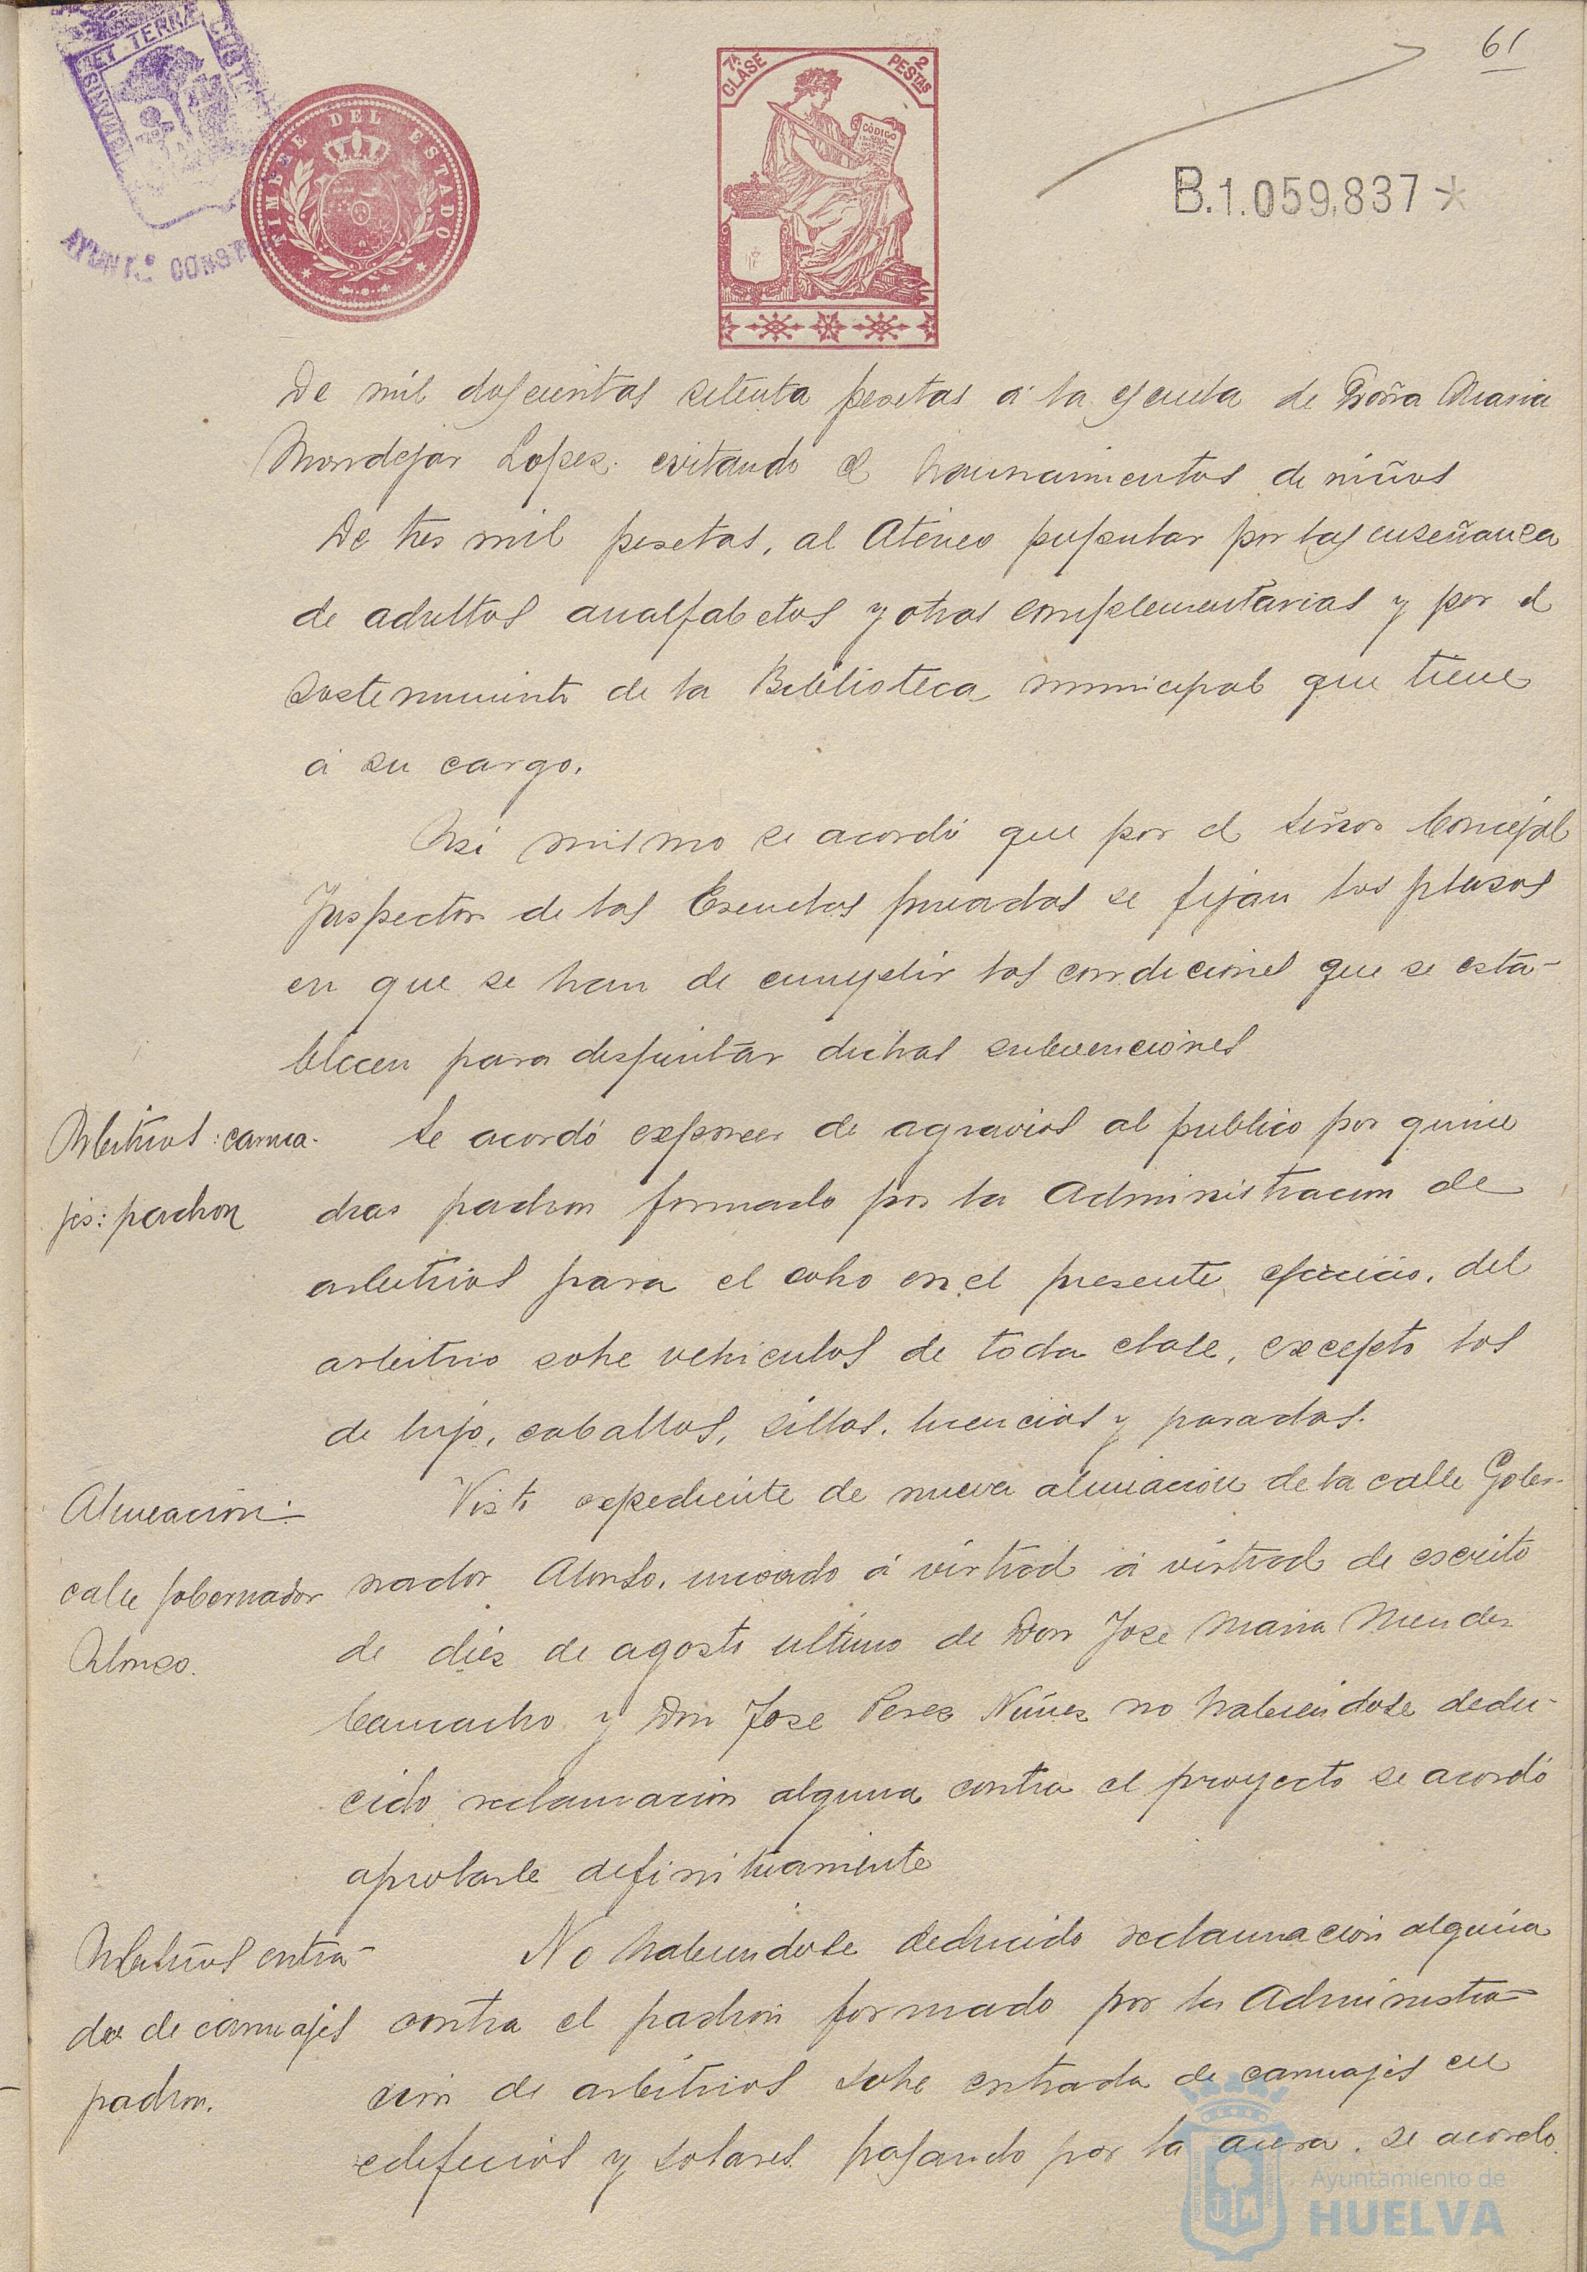 61
7ª CLASE
2 PESTAS
CÓDIGO
TIMBRE DEL ESTADO
AYUNTº CONST
B.1.059.837*
De mil doscientas setenta pesetas á la escuela de Doña Maria
Mondejar Lopez. evitando el hacinamientos de niños
De tres mil pesetas, al Ateneo popular por las enseñanza
de adultos analfabetos y otras complementarias y por el
sostenimiento de la Biblioteca municipal que tiene
á su cargo.
Asi mismo se acordó que por el Señor Concejal
Inspector de las Escuelas privadas se fijan los plazos
en que se han de cumplir las condiciones que se esta-
blecen para disfrutar dichas subvenciones
Arbitrios: carrua-
jes: padron
Se acordó exponer de agravios al publico por quince
dias padron formado por la Administracion de
arbitrios para el cobro en el presente ejercicio, del
arbitrio sobre vehiculos de toda clase, excepto los
de lujo, caballos, sillas, licencias y paradas.
Alineación:
calle Gobernador
Alonso.
Visto expediente de nueva alineación de la calle Gober-
nador Alonso, incoado á virtud á virtud de escrito
de diés de agosto ultimo de Don Jose Maria Mendez
Camacho y Don Jose Perez Nuñez no habiéndose dedu-
cido reclamacion alguna contra el proyecto se acordó
aprobarle definitivamente
Arbitrios entra-
das de carruajes
padron.
No habiendose deducido reclamación alguna
contra el padrón formado por la Administra-
cion de arbitrios sobre entrada de carruajes en
edificios y solares pasando por la acera. se acordo
Ayuntamiento de
HUELVA